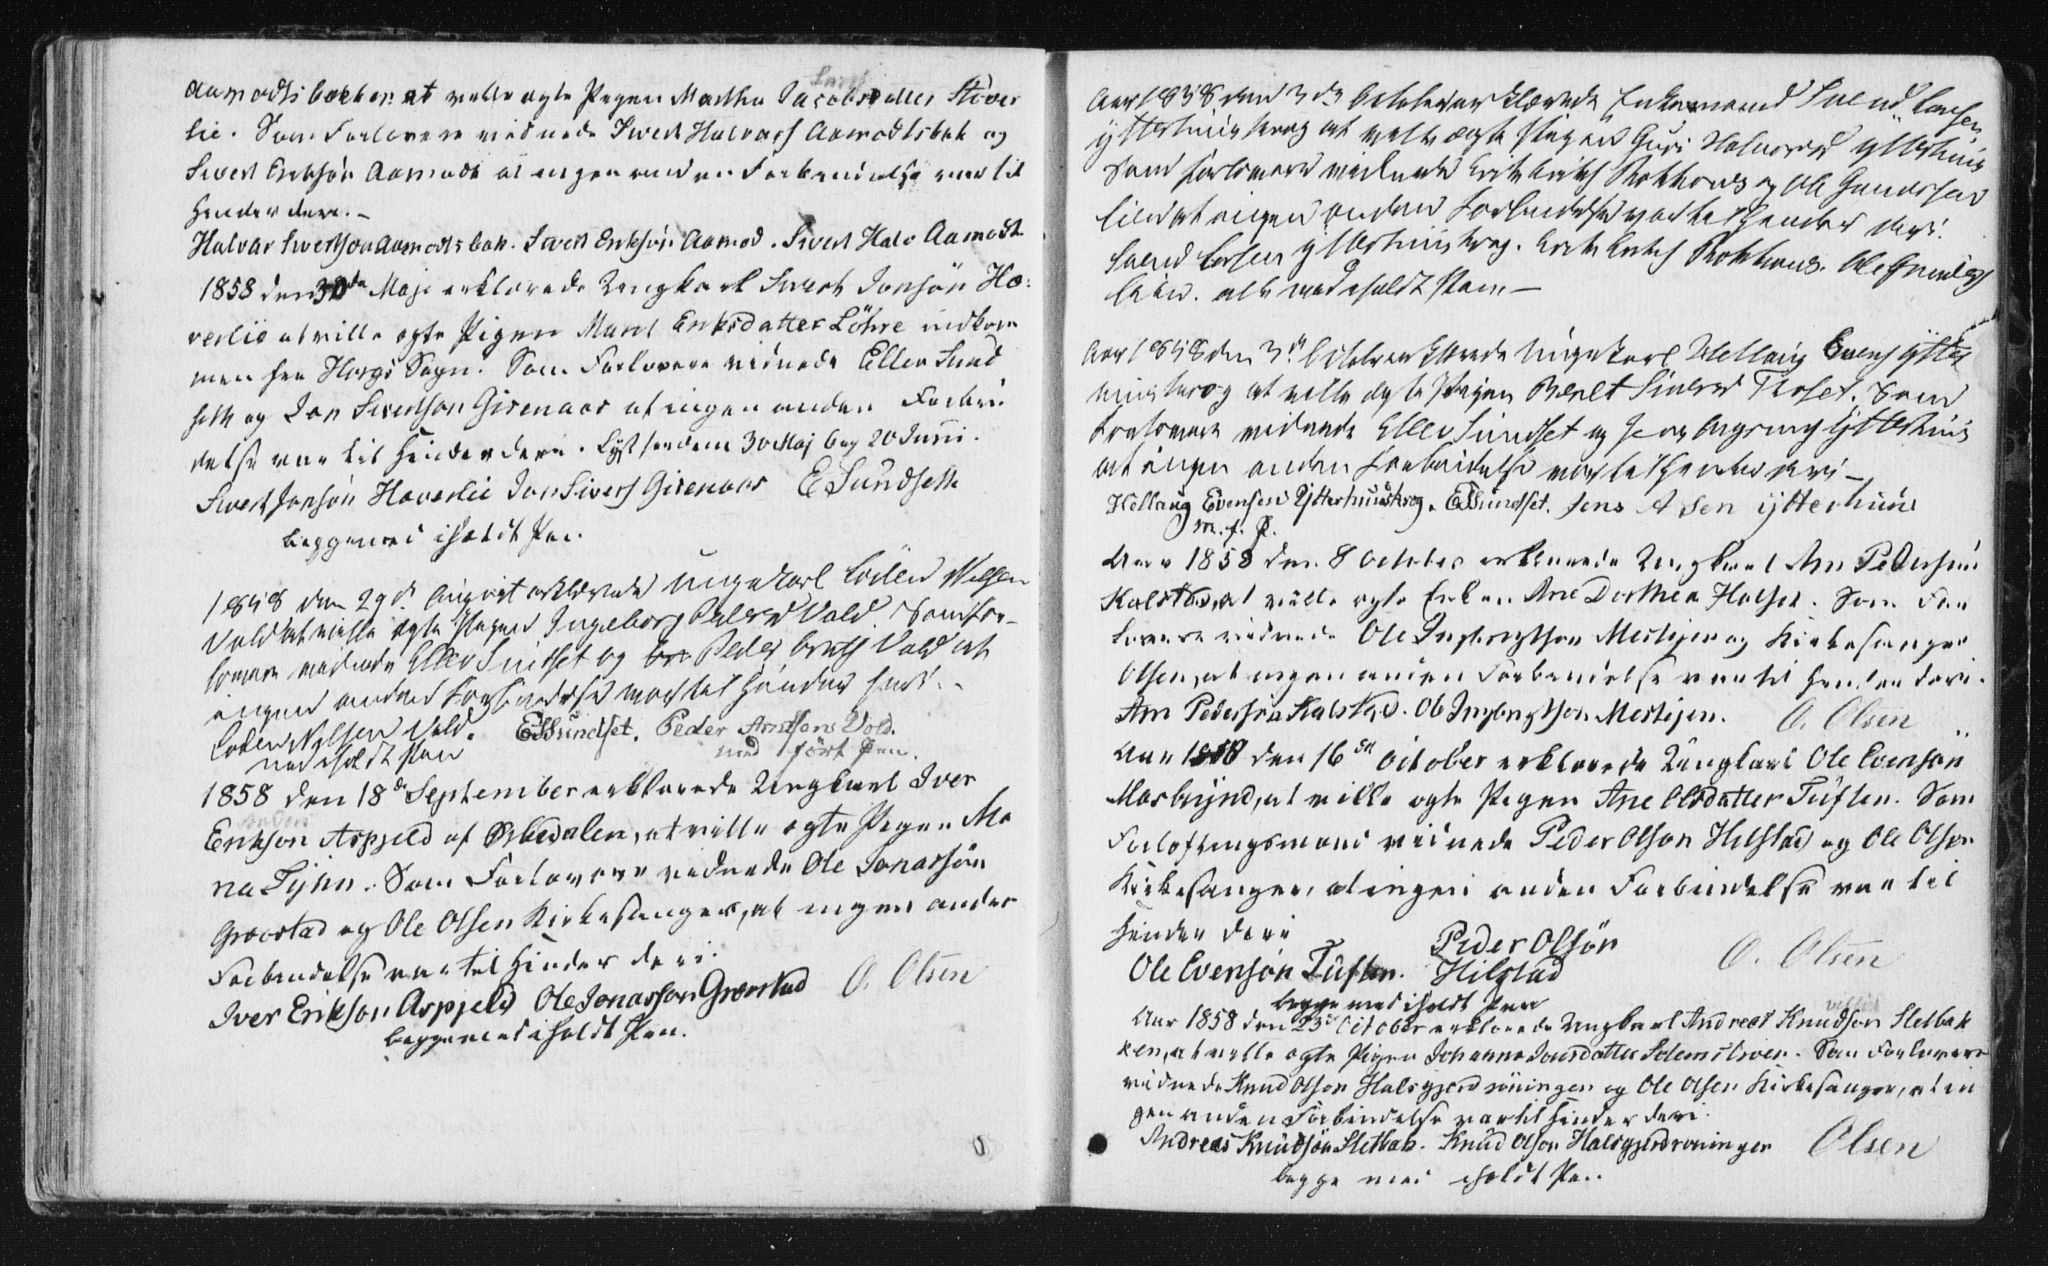 Aamodtsbakken at ville egte Pigen Martha Jacobsdatter Støver
lie. Som Forlovere vidnede Sivert Halvors Aamodtsbak og
Sivert Eriksön Aamodt at ingen anden Forbindelse var til
Hinder deri.
Halvor Sivertson Aamodtsbak. Sivert Eriksön Aamod. Sivert Halv Aamodt
1858 den 30de Maji erklærede Ungkarl Sivert Jonsön Ho:
verlie at ville egte Pigen Marit Eriksdatter Löhre indkom
men fra Horgs Sogn. Som Forlovere vidnede Ellev Sund
seth og Jon Sivertson Gisenaas at ingen anden Forbin
delse var til Hinder deri. Lyst for dem 30 Maj beg 20 Juni.
Sivert Jonsön Haverlie Jon Sivers Gisenaas E Sundseth
begge med iholdt Pen.
1858 den 29de August erklærede Ungekarl Loden Nilsen
Vold at ville egte Pigen Ingeborg Vold. Som For-
lovere vidnede Ellev Sundset og Peder Arnts Vold at
ingen anden Forbindelse var til Hinder heri.
Loden Nilsen Vold. E Sundset. Peder Arntsons Vold.
med iholdt Pen med ført Pen.
1858 den 18de September erklærede Ungkarl Iver
Erikson Aspjeld af Orkedalen, at ville egte Pigen Ma
na Tyhn. Som Forlovere vidnede Ole Jonassön
Grovstad og Ole Olsen Kirkesanger, at ingen anden
Forbindelse var til Hinder deri.
Iver Erikson Aspjeld Ole Jonasson Grovstad O. Olsen
begge med iholdt Pen.
Aar 1858 den 3de October erklærede Enkemand Svend Larsen
Ytterhuuskrog at ville ægte Pigen Guri Halvorsd Ytterhuus
Som Forlovere vidnede Erik Eriks Rokkones og Ole Gundersen
Lien at ingen anden Forbindelse var til Hinder deri.
Svend Larsen Ytterhuuskrog. Erik Eriks Rokkones. Ole Gunders
Lien. alle med iholdt Pen
Aar 1858 den 3de October erklærede Ungekarl Hellaug Evens Ytter
huuskrog at ville ægte Pigen Beret Siversd Troset. Som
Forlovere vidnede Ellev Sundset og Ytterhuus
at ingen anden Forbindelse var til Hinder deri
Hellaug Evensen Ytterhuuskrog. E Sundset. Jens A sen Ytterhuus
m. f. P.
Aar 1858 den 8 October erklærede Ungkarl Arn Pedersen
Kalstad, at ville egte Enken Ane Dorthea Halset. Som For
lovere vidnede Ole Ingebrigtson Mestejen og Kirkesanger
Olsen, at ingen anden Forbindelse var til Hinder deri.
Arn Pedersön Kalstad. Ole Ingbrigtson Mestejen. O. Olsen
Aar 1858 den 16de October erklærede Ungkarl Ole Evensön
Morbrynd, at ville egte Pigen Ane Olsdatter Tüften. Som
Forlofningsmænd vidnede Peder Olson Hilstad og Ole Olsen
Kirkesanger, at ingen anden Forbindelse var til
Hinder deri
Ole Evenson Tüften. Peder Olsön Hilstad O. Olsen
begge med iholdt Pen
Aar 1858 den 23de October erklærede Ungkarl Andreas Knudson Sletbak
ken, at ville egte Pigen Johanna Jonsdatter Solemslien. Som Forlovere
vidnede Knud Olson Halsgjerdröningen og Ole Olsen Kirkesanger, at in
gen anden Forbindelse var til Hinder deri.
Andreas Knüdsön Sletbak. Knüd Olson Halsgjerdröninger Olsen
begge med iholdt Pen.